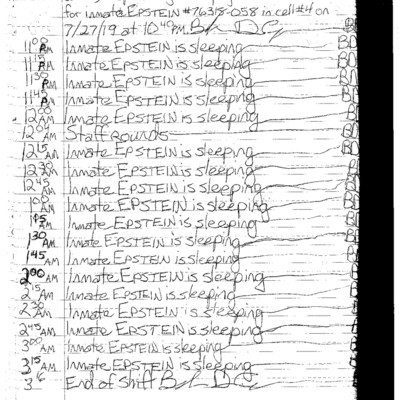 for Inmate EPSTEIN #76318-058 in cell #4 on
7/27/19 at 10:45PM.
11:00 PM Inmate EPSTEIN is sleeping
11:15 PM Inmate EPSTEIN is sleeping
11:30 PM Inmate EPSTEIN is sleeping
11:45 PM Inmate EPSTEIN is sleeping
12:00 AM Inmate EPSTEIN is sleeping
12:01 AM Staff rounds
12:15 AM Inmate EPSTEIN is sleeping
12:30 AM Inmate EPSTEIN is sleeping
12:45 AM Inmate EPSTEIN is sleeping
1:00 AM Inmate EPSTEIN is sleeping
1:15 AM Inmate EPSTEIN is sleeping
1:30 AM Inmate EPSTEIN is sleeping
1:45 AM Inmate EPSTEIN is sleeping
2:00 AM Inmate EPSTEIN is sleeping
2:15 AM Inmate EPSTEIN is sleeping
2:30 AM Inmate EPSTEIN is sleeping
2:45 AM Inmate EPSTEIN is sleeping
3:00 AM Inmate EPSTEIN is sleeping
3:15 AM Inmate EPSTEIN is sleeping
End of shift